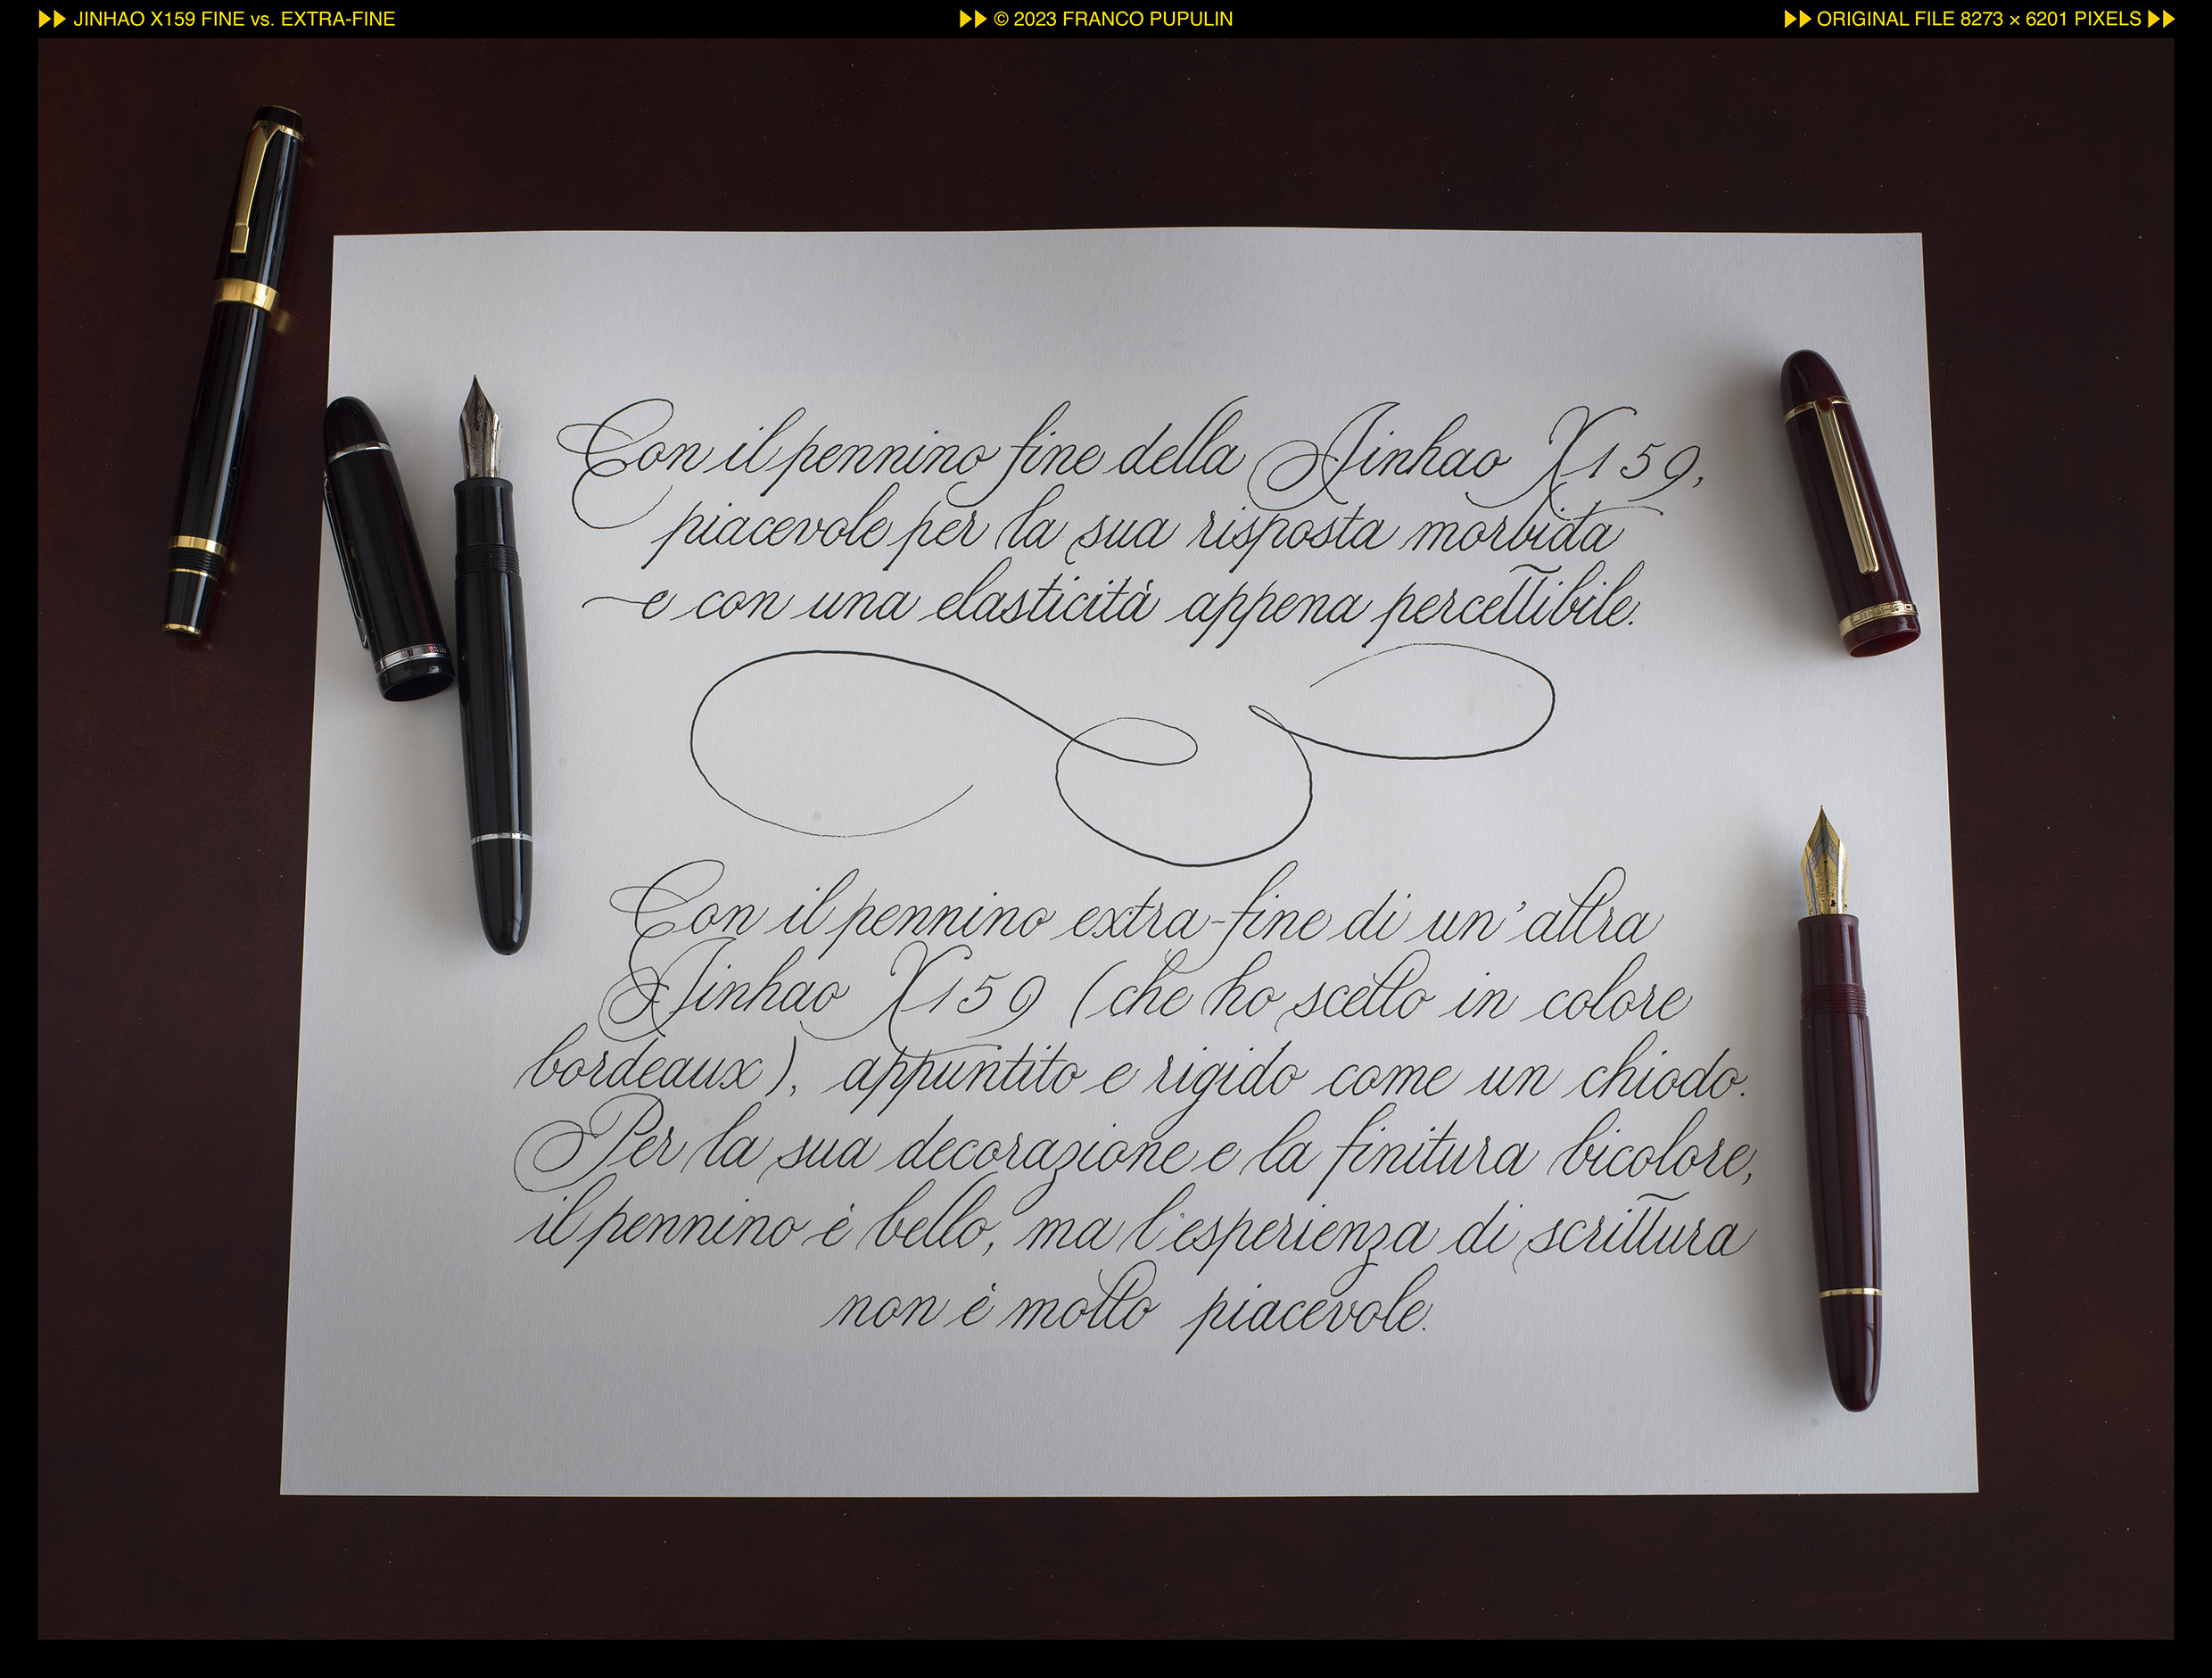 JINHAO X159 FINE vs. EXTRA-FINE
© 2023 FRANCO PUPULIN
ORIGINAL FILE 8273 × 6201 PIXELS
Con il pennino fine della Jinhao X159,
piacevole per la sua risposta morbida
e con una elasticità appena percettibile.
Con il pennino extra-fine di un'altra
Jinhao X159 (che ho scelto in colore
bordeaux), appuntito e rigido come un chiodo.
Per la sua decorazione e la finitura bicolore,
il pennino è bello, ma l'esperienza di scrittura
non è molto piacevole.